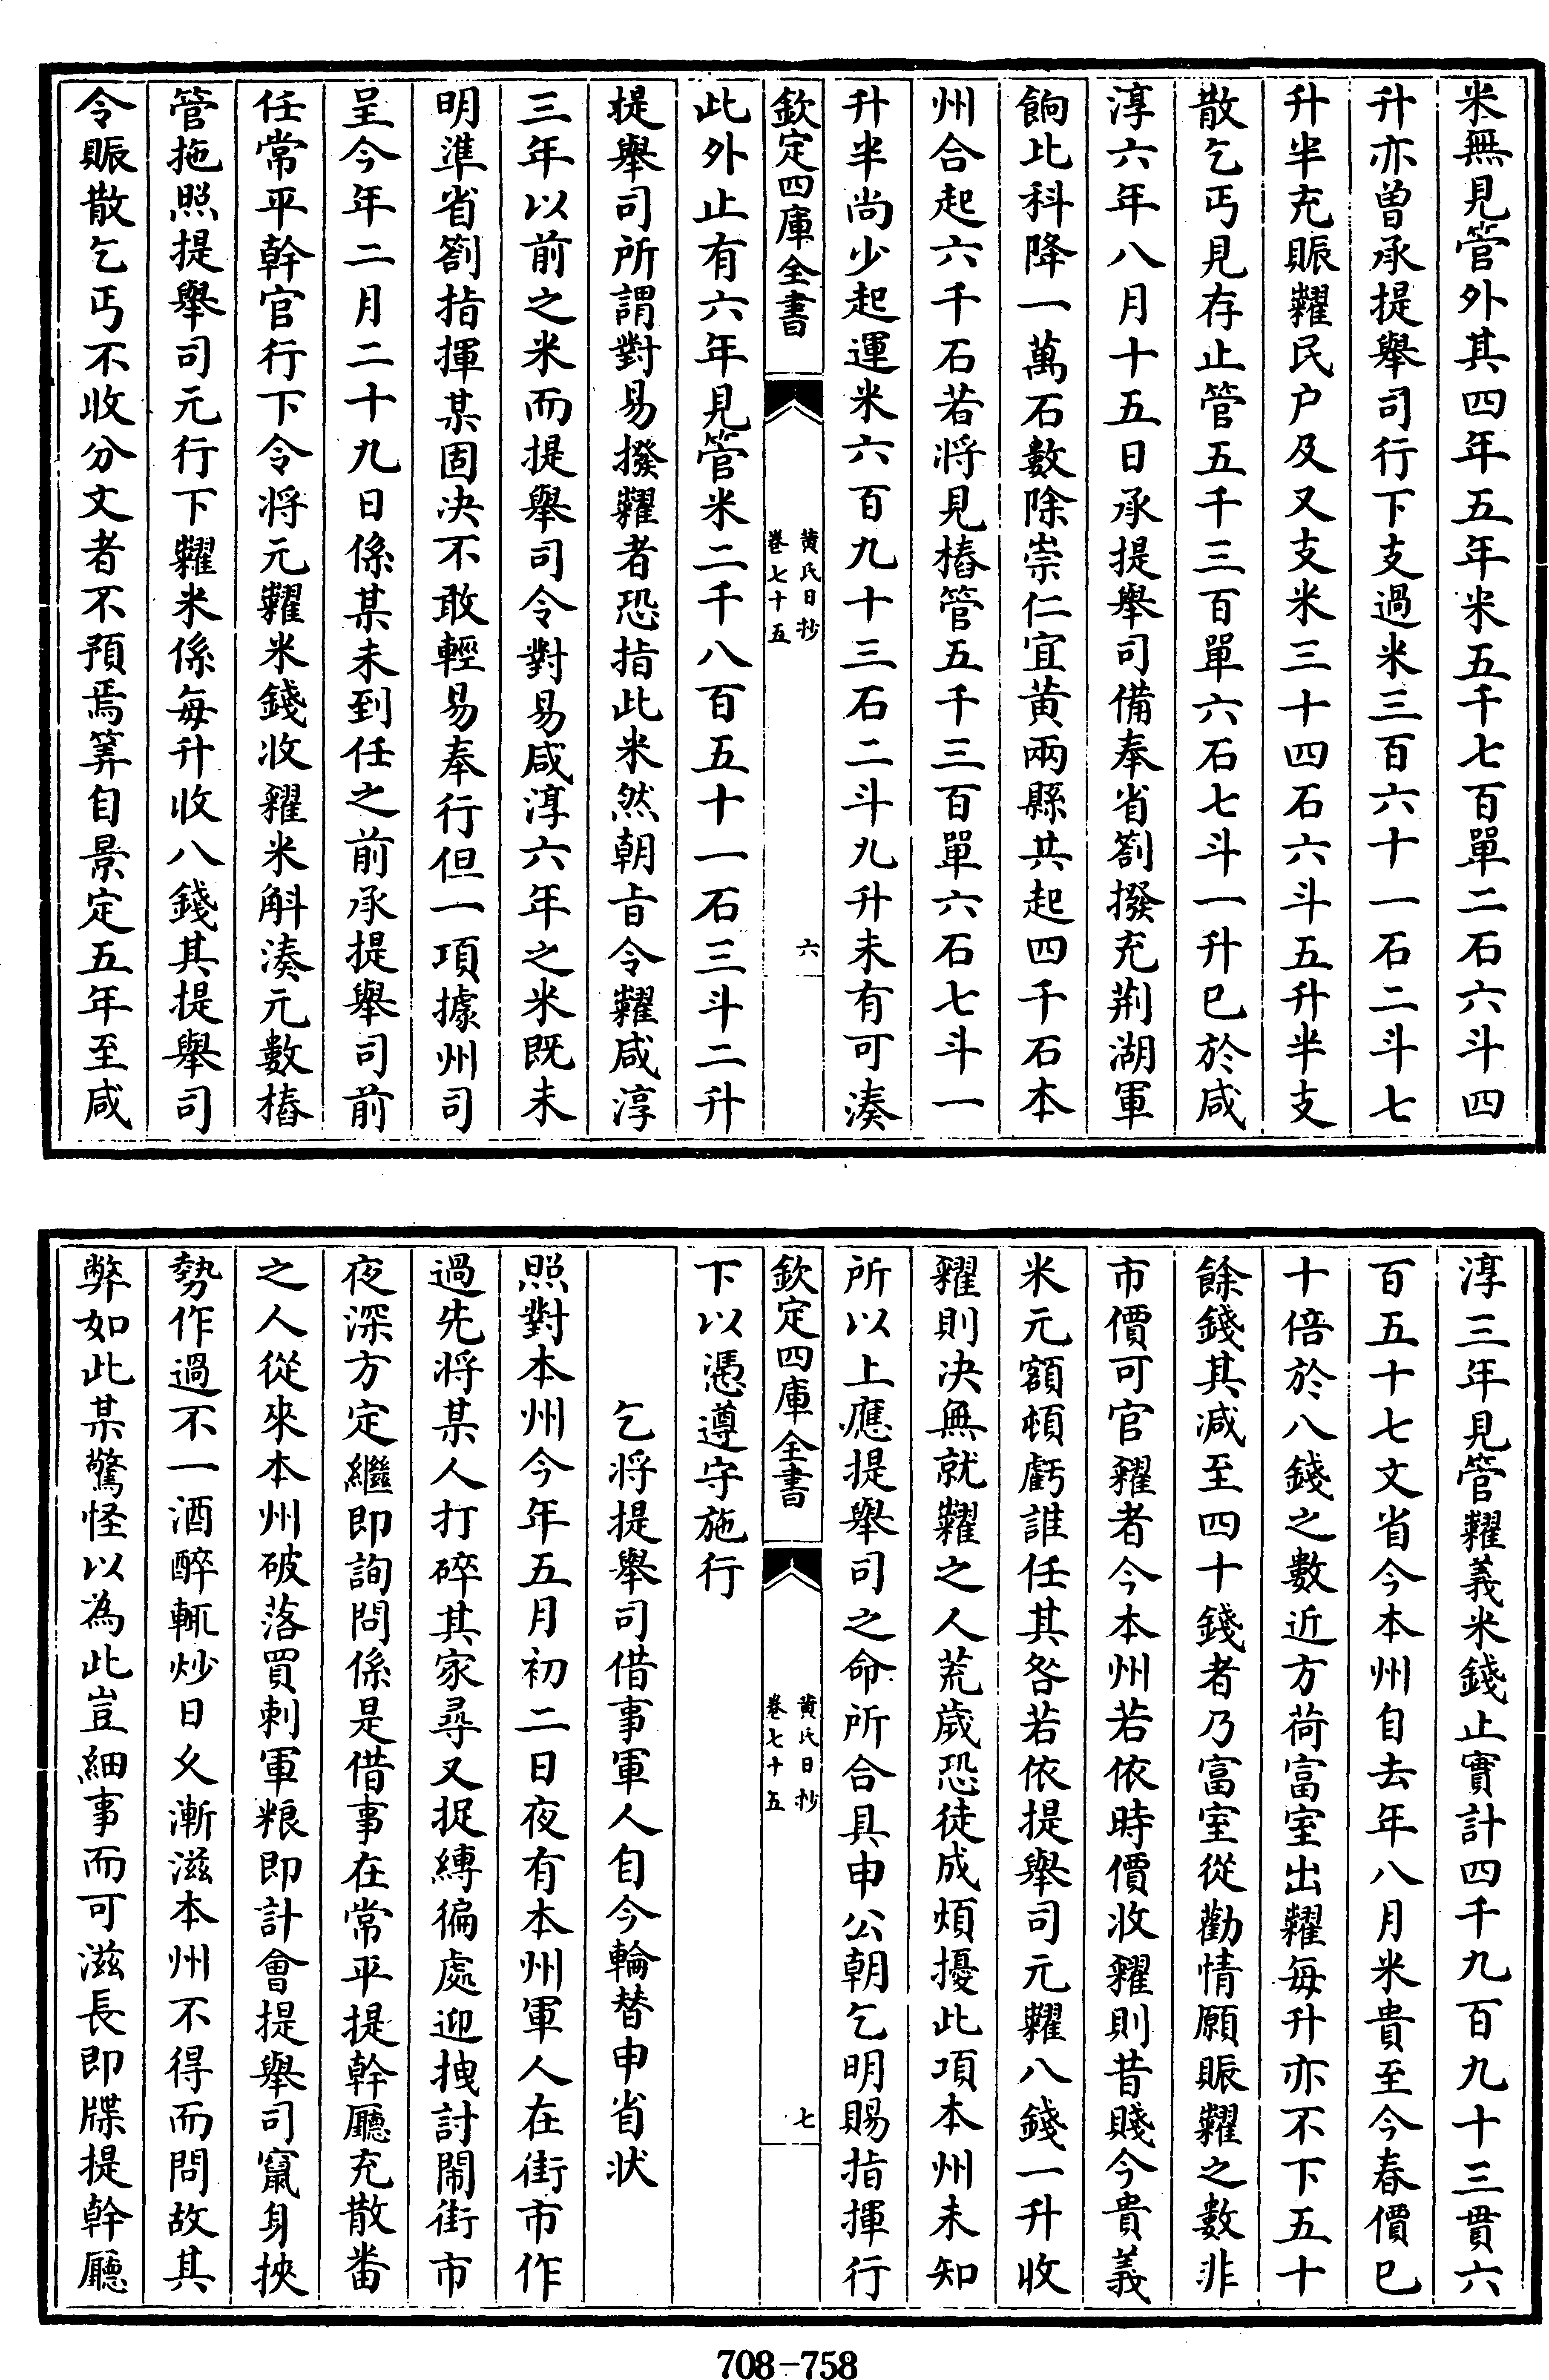 米無見管外其四年五年米五千七百單二石六斗四
升亦曽承提舉司行下支過米三百六十一石二斗七
升半充賑糶民户及又支米三十四石六斗五升半支
散乞丐見存止管五千三百單六石七斗一升已於咸
淳六年八月十五日承提舉司備奉省劄撥充荆湖軍
餉比科降一萬石數除崇仁宜黄兩縣共起四千石本
州合起六千石若将見樁管五千三百單六石七斗一
升半尚少起運米六百九十三石二斗九升未有可湊
欽定四庫全書
黄氏日抄
卷七十五
六
此外止有六年見管米二千八百五十一石三斗二升
提舉司所謂對易撥糶者恐指此米然朝㫖令糶咸淳
三年以前之米而提舉司令對易咸淳六年之米既未
明準省劄指揮某固决不敢輕易奉行但一項據州司
呈今年二月二十九日係某未到任之前承提舉司前
任常平幹官行下令将元糶米錢收糴米斛湊元數樁
管拖照提舉司元行下糶米係每升收八錢其提舉司
令賑散乞丐不收分文者不預焉筭自景定五年至咸
淳三年見管糶義米錢止實計四千九百九十三貫六
百五十七文省今本州自去年八月米貴至今春價已
十倍於八錢之數近方荷富室出糶每升亦不下五十
餘錢其减至四十錢者乃富室從勸情願賑糶之數非
市價可官糴者今本州若依時價收糴則昔賤今貴義
米元額頓虧誰任其咎若依提舉司元糶八錢一升收
糴則决無就糶之人荒歲恐徒成煩擾此項本州未知
所以上應提舉司之命所合具申公朝乞明賜指揮行
欽定四庫全書
黄氏日抄
卷七十五
七
下以憑遵守施行
乞将提舉司借事軍人自今輪替申省状
照對本州今年五月初二日夜有本州軍人在街市作
過先将某人打碎其家尋又捉縛徧處迎拽討鬧街市
夜深方定繼即詢問係是借事在常平提幹廳充散畨
之人從來本州破落買刺軍粮即計會提舉司竄身挾
勢作過不一酒醉輒炒日乆漸滋本州不得而問故其
弊如此某驚怪以為此豈細事而可滋長即牒提幹廳
708-758